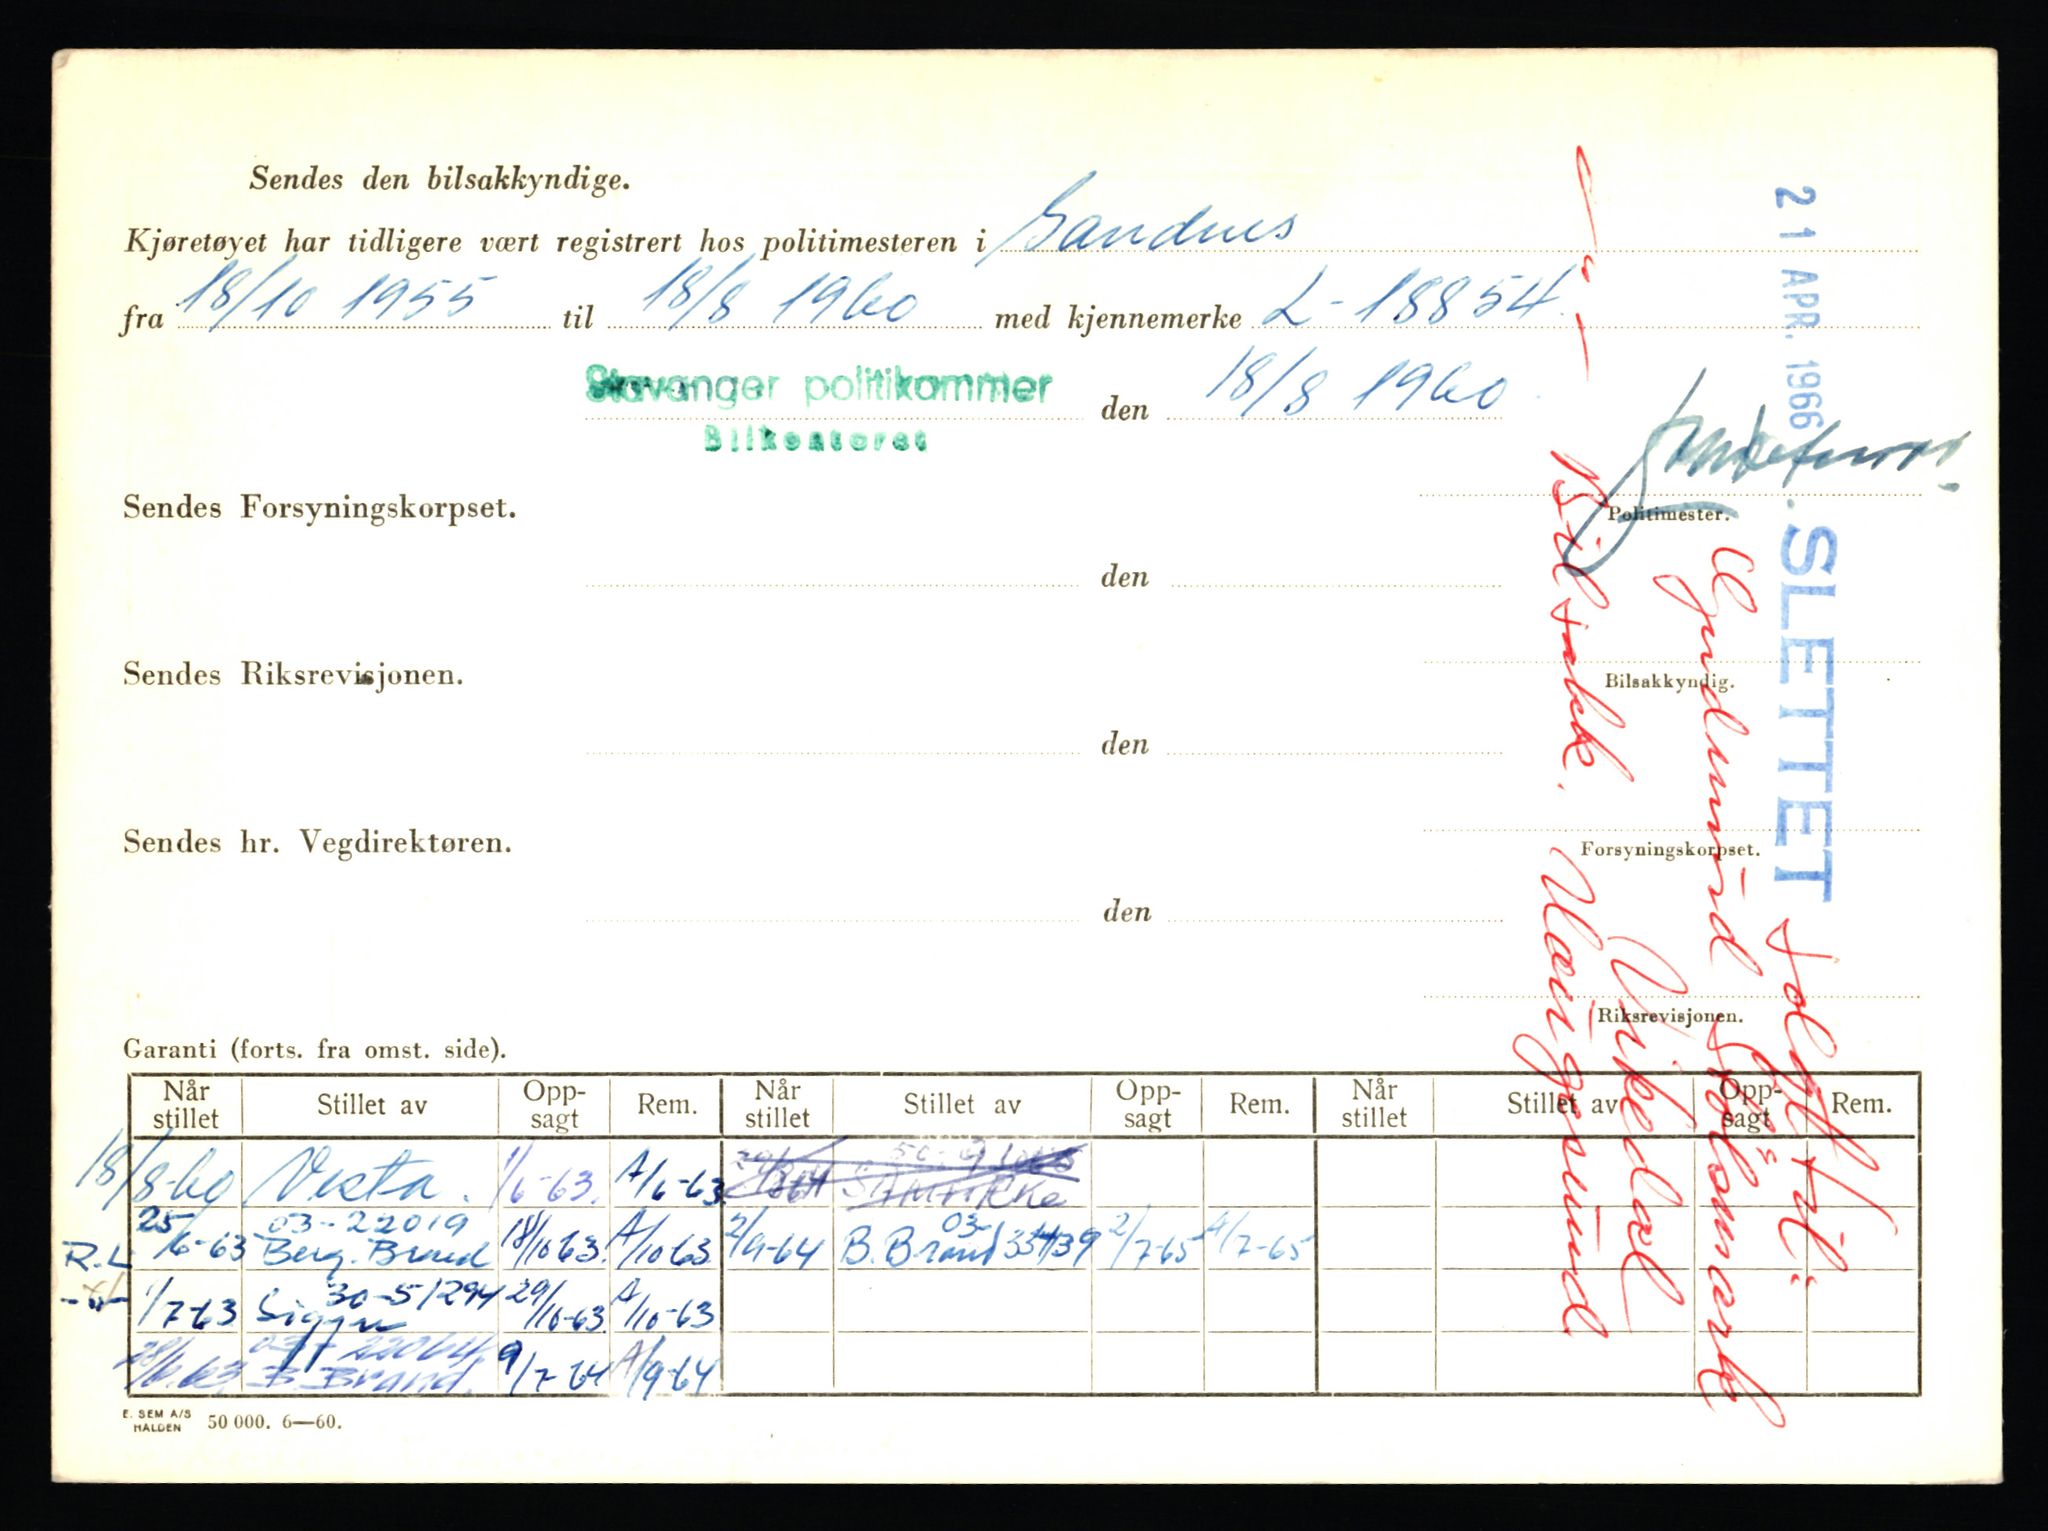 Sendes den bilsakkyndige.
Kjøretøyet har tidligere vært registrert hos politimesteren i Sandnes
fra 18/10 1955 til 18/8 1960 med kjennemerke L-18854.
Stavanger politikammer den 18/8 1960
Bilkontoret
Sendes Forsyningskorpset.
Politimester.
den
Sendes Riksrevisjonen.
Bilsakkyndig.
den
Sendes hr. Vegdirektøren.
Forsyningskorpset.
den
Riksrevisjonen.
21 APR. 1966
SLETTET
solgt til:
Gudmund
Vikedal
Bilsakk.
Garanti (forts. fra omst. side).
Når stillet Stillet av Oppsagt Rem. Når stillet Stillet av Oppsagt Rem. Når stillet Stillet av Oppsagt Rem.
18/8-60 Vesta. 1/6-63. A/6-63
R.L 25/6-63 03-22019 Berg. Brand 18/10 63. A/10 63 2/9-64 B. Brand 03- 2/7-65 A/7-65
-"- 1/7-63 30-51294 Sigyn 29/10-63. A/10-63
B Brand. 9/7-64 A/9-64
E. SEM A/S HALDEN 50 000. 6—60.